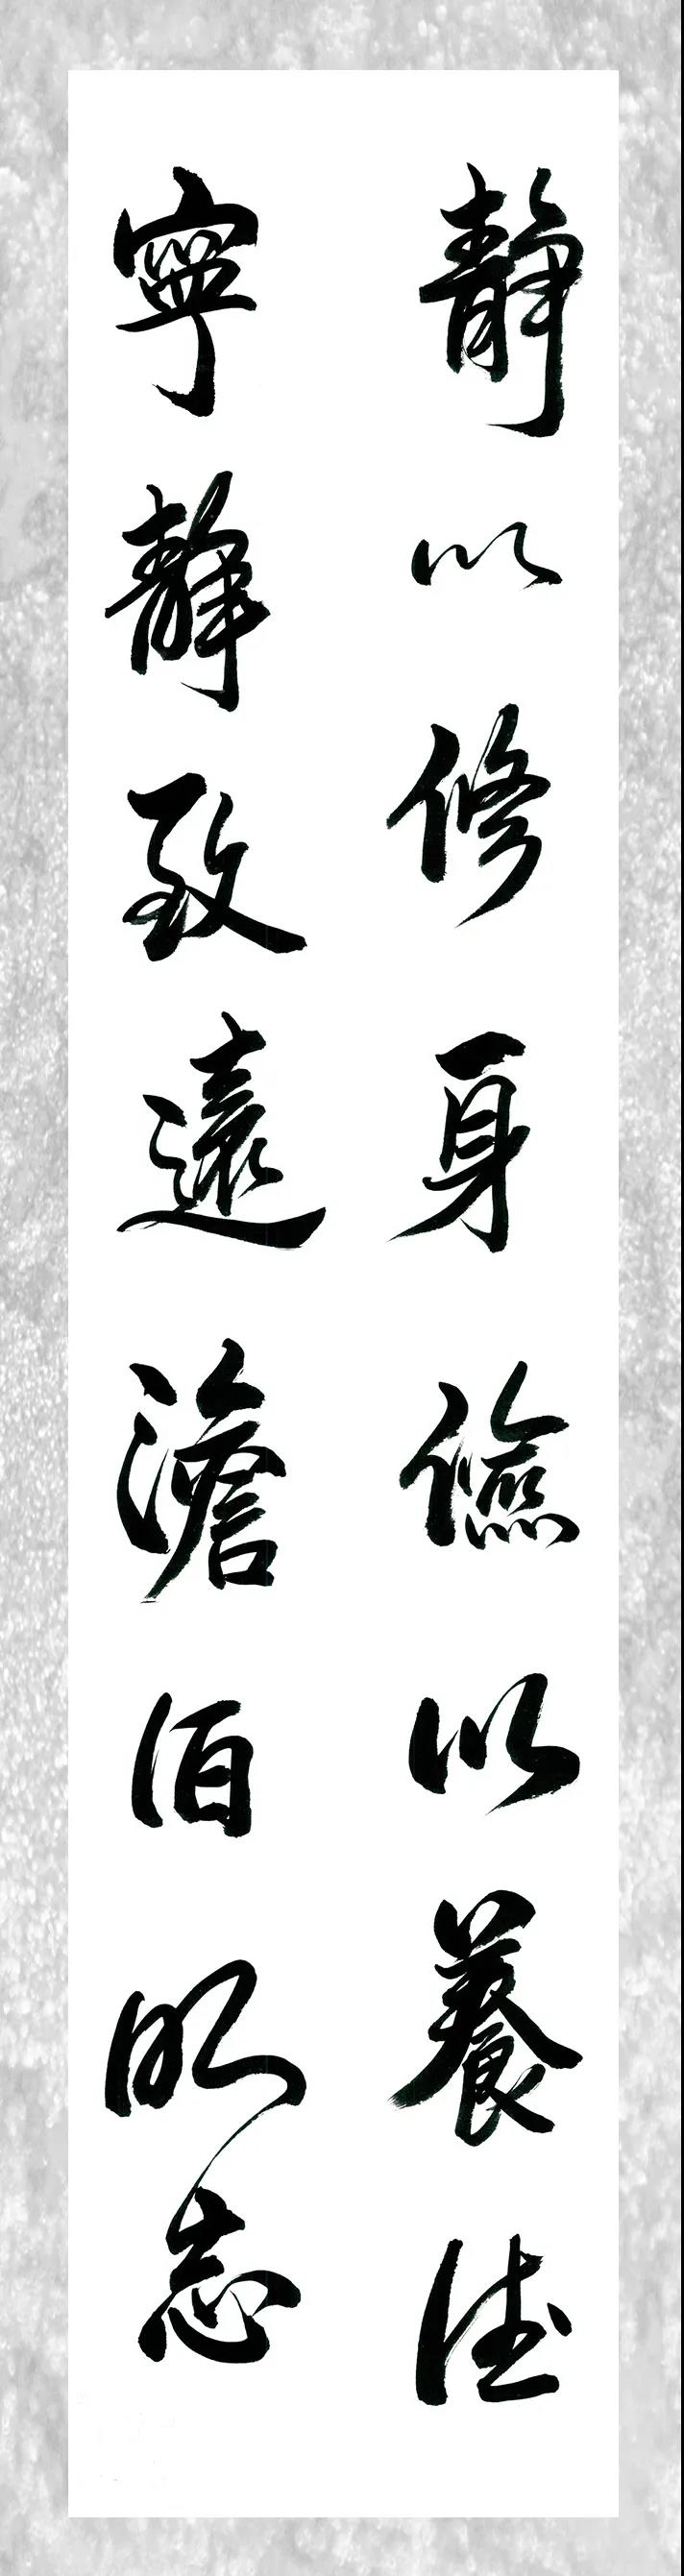 靜以修身儉以養德
寧靜致遠澹泊明志